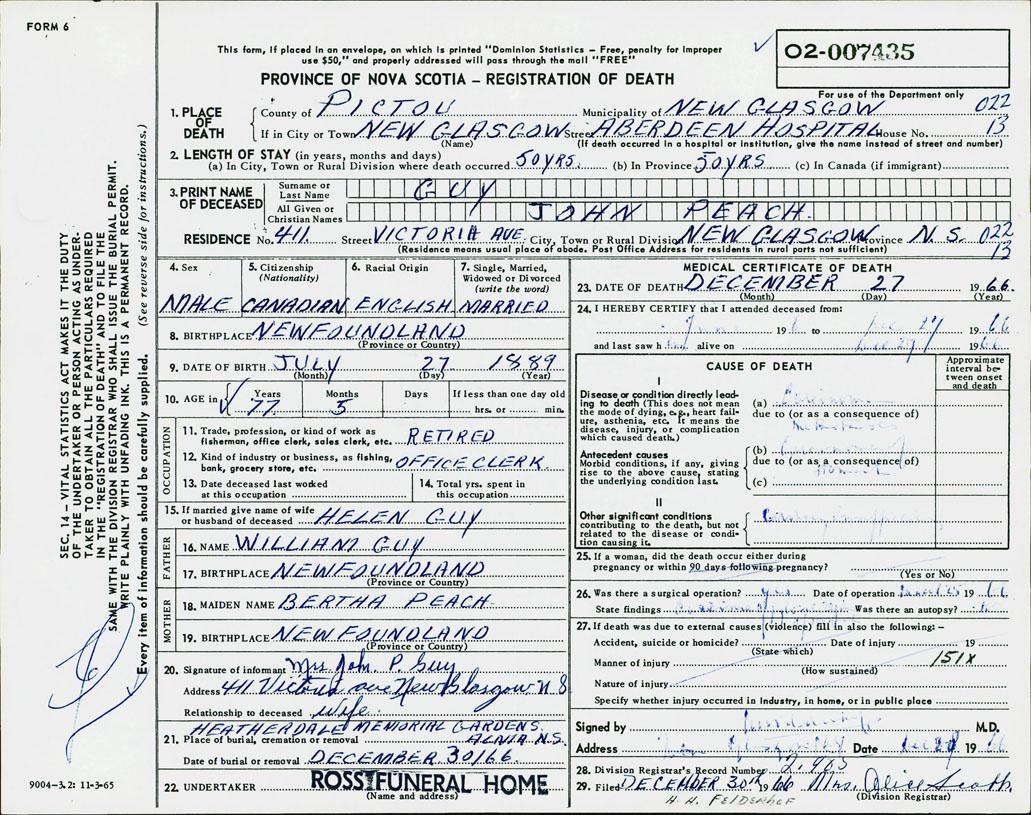 FORM 6
This form, if placed in an envelope, on which is printed "Dominion Statistics - Free, penalty for improper
use $50," and properly addressed will pass through the mail "FREE"
O2-007435
PROVINCE OF NOVA SCOTIA - REGISTRATION OF DEATH
For use of the Department only
1. PLACE OF DEATH
County of PICTOU Municipality of NEW GLASGOW 022
If in City or Town NEW GLASGOW Street ABERDEEN HOSPITAL House No. 13
(Name) (If death occurred in a hospital or institution, give the name instead of street and number)
2. LENGTH OF STAY (in years, months and days)
(a) In City, Town or Rural Division where death occurred 50 YRS. (b) In Province 50 YRS (c) In Canada (if immigrant)
3. PRINT NAME OF DECEASED
Surname or Last Name GUY
All Given or Christian Names JOHN PEACH.
RESIDENCE No. 411. Street VICTORIA AVE. City, Town or Rural Division NEW GLASGOW Province N.S. 022
(Residence means usual place of abode. Post Office Address for residents in rural parts not sufficient) 13
4. Sex MALE
5. Citizenship (Nationality) CANADIAN
6. Racial Origin ENGLISH
7. Single, Married, Widowed or Divorced (write the word) MARRIED
8. BIRTHPLACE NEWFOUNDLAND
(Province or Country)
9. DATE OF BIRTH JULY 27 1889
(Month) (Day) (Year)
10. AGE in Years 77 Months 5 Days If less than one day old hrs. or min.
OCCUPATION
11. Trade, profession, or kind of work as fisherman, office clerk, sales clerk, etc. RETIRED
12. Kind of industry or business, as fishing, bank, grocery store, etc. OFFICE CLERK.
13. Date deceased last worked at this occupation
14. Total yrs. spent in this occupation
15. If married give name of wife or husband of deceased HELEN GUY
FATHER
16. NAME WILLIAM GUY
17. BIRTHPLACE NEWFOUNDLAND
(Province or Country)
MOTHER
18. MAIDEN NAME BERTHA PEACH.
19. BIRTHPLACE NEWFOUNDLAND
(Province or Country)
20. Signature of informant Mrs John. P. Guy
Address 411 Victoria ave New Glasgow N S
Relationship to deceased wife.
HEATHERDALE MEMORIAL GARDENS.
21. Place of burial, cremation or removal N.S.
Date of burial or removal DECEMBER 30/66.
22. UNDERTAKER ROSS FUNERAL HOME
(Name and address)
MEDICAL CERTIFICATE OF DEATH
23. DATE OF DEATH DECEMBER 27 1966.
(Month) (Day) (Year)
24. I HEREBY CERTIFY that I attended deceased from:
19 to Dec 27 1966
and last saw h alive on 1966
CAUSE OF DEATH
Approximate interval between onset and death
I
Disease or condition directly leading to death (This does not mean the mode of dying, e.g., heart failure, asthenia, etc. It means the disease, injury, or complication which caused death.)
(a)
due to (or as a consequence of)
Antecedent causes
Morbid conditions, if any, giving rise to the above cause, stating the underlying condition last.
(b)
due to (or as a consequence of)
(c)
II
Other significant conditions contributing to the death, but not related to the disease or condition causing it.
25. If a woman, did the death occur either during
pregnancy or within 90 days following pregnancy?
(Yes or No)
26. Was there a surgical operation? yes Date of operation 1966
State findings Was there an autopsy?
27. If death was due to external causes (violence) fill in also the following: -
Accident, suicide or homicide? Date of injury 19
(State which)
Manner of injury 151X
(How sustained)
Nature of injury
Specify whether injury occurred in industry, in home, or in public place
Signed by M.D.
Address Date 1966
28. Division Registrar's Record Number
29. Filed DECEMBER 30th 1966 Mrs. Alice Scott
H. H. FELDERHOF (Division Registrar)
SEC. 14 - VITAL STATISTICS ACT MAKES IT THE DUTY
OF THE UNDERTAKER OR PERSON ACTING AS UNDER-
TAKER TO OBTAIN ALL THE PARTICULARS REQUIRED
IN THE "REGISTRATION OF DEATH" AND TO FILE THE
SAME WITH THE DIVISION REGISTRAR WHO SHALL ISSUE THE BURIAL PERMIT.
WRITE PLAINLY WITH UNFADING INK. THIS IS A PERMANENT RECORD.
Every item of information should be carefully supplied. (See reverse side for instructions.)
9004-3.2: 11-3-65